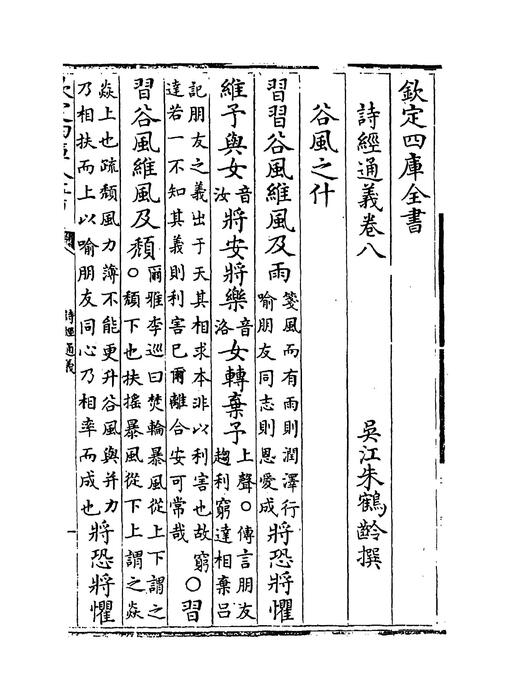 欽定四庫全書
詩經通義卷八
吳江朱鶴齡撰
谷風之什
習習谷風維風及雨箋風而有雨則潤澤行喻朋友同志則恩愛成將恐將懼
維予與女音汝將安將樂音洛女轉棄予上聲○傳言朋友趨利窮達相棄呂
記朋友之義出于天其相求本非以利害也故窮達若一不知其義則利害已爾離合安可常哉○習
習谷風維風及頹○爾雅李巡曰焚輪暴風從上下謂之頹下也扶搖暴風從下上謂之猋
猋上也疏頹風力薄不能更升谷風與并力乃相扶而上以喻朋友同心乃相率而成也將恐將懼
詩經通義
一